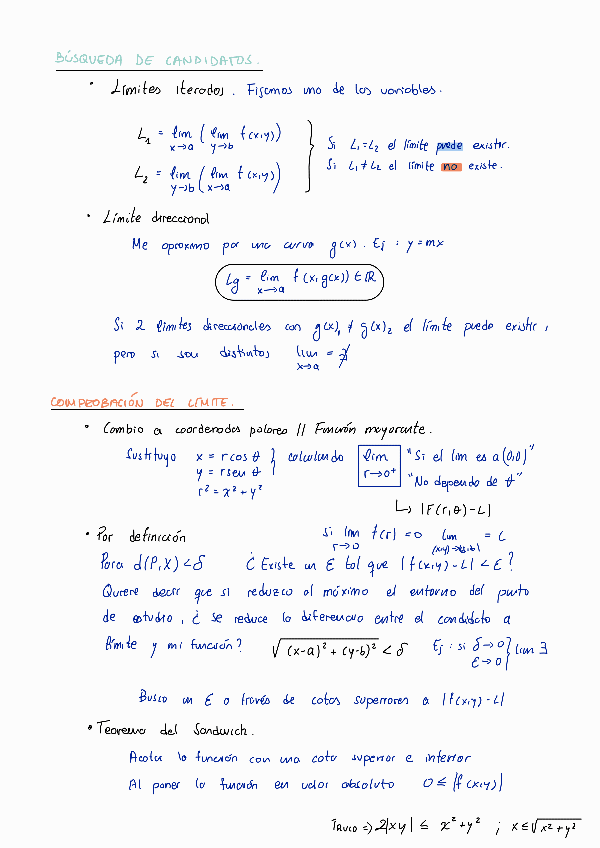 BÚSQUEDA DE CANDIDATOS.
• Límites iterados. Fijamos uno de las variables.
L₁ = lim x→a ( lim y→b f(x,y))
L₂ = lim y→b ( lim x→a f(x,y))
Si L₁=L₂ el límite puede existir.
Si L₁≠L₂ el límite no existe.
• Límite direccional
Me aproximo por una curva g(x). Ej: y=mx
Lg = lim x→a f(x,g(x)) ∈ ℝ
Si 2 límites direccionales con g(x)₁ ≠ g(x)₂ el límite puede existir,
pero si son distintos lim x→a = ∄
COMPROBACIÓN DEL LÍMITE.
• Cambio a coordenadas polares // Función mayorante.
Sustituyo x = r cos θ
y = r sen θ
r² = x² + y²
calculando lim r→0⁺
"Si el lim es a (0,0)"
"No depende de θ"
↳ |F(r,θ)-L|
si lim r→0 f(r) = 0 lim (x,y)→(a,b) = L
• Por definición
Para d(P,X) < δ ¿Existe un ε tal que |f(x,y)-L| < ε?
Quiere decir que si reduzco al máximo el entorno del punto
de estudio, ¿se reduce la diferencia entre el candidato a
límite y mi función? √(x-a)² + (y-b)² < δ Ej: si δ→0 ε→0 } lim ∃
Busco un ε a través de cotas superiores a |f(x,y)-L|
• Teorema del Sandwich.
Acotar la función con una cota superior e inferior
Al poner la función en valor absoluto 0 ≤ |f(x,y)|
TRUCO => 2|xy| ≤ x²+y² ; x ≤ √x²+y²